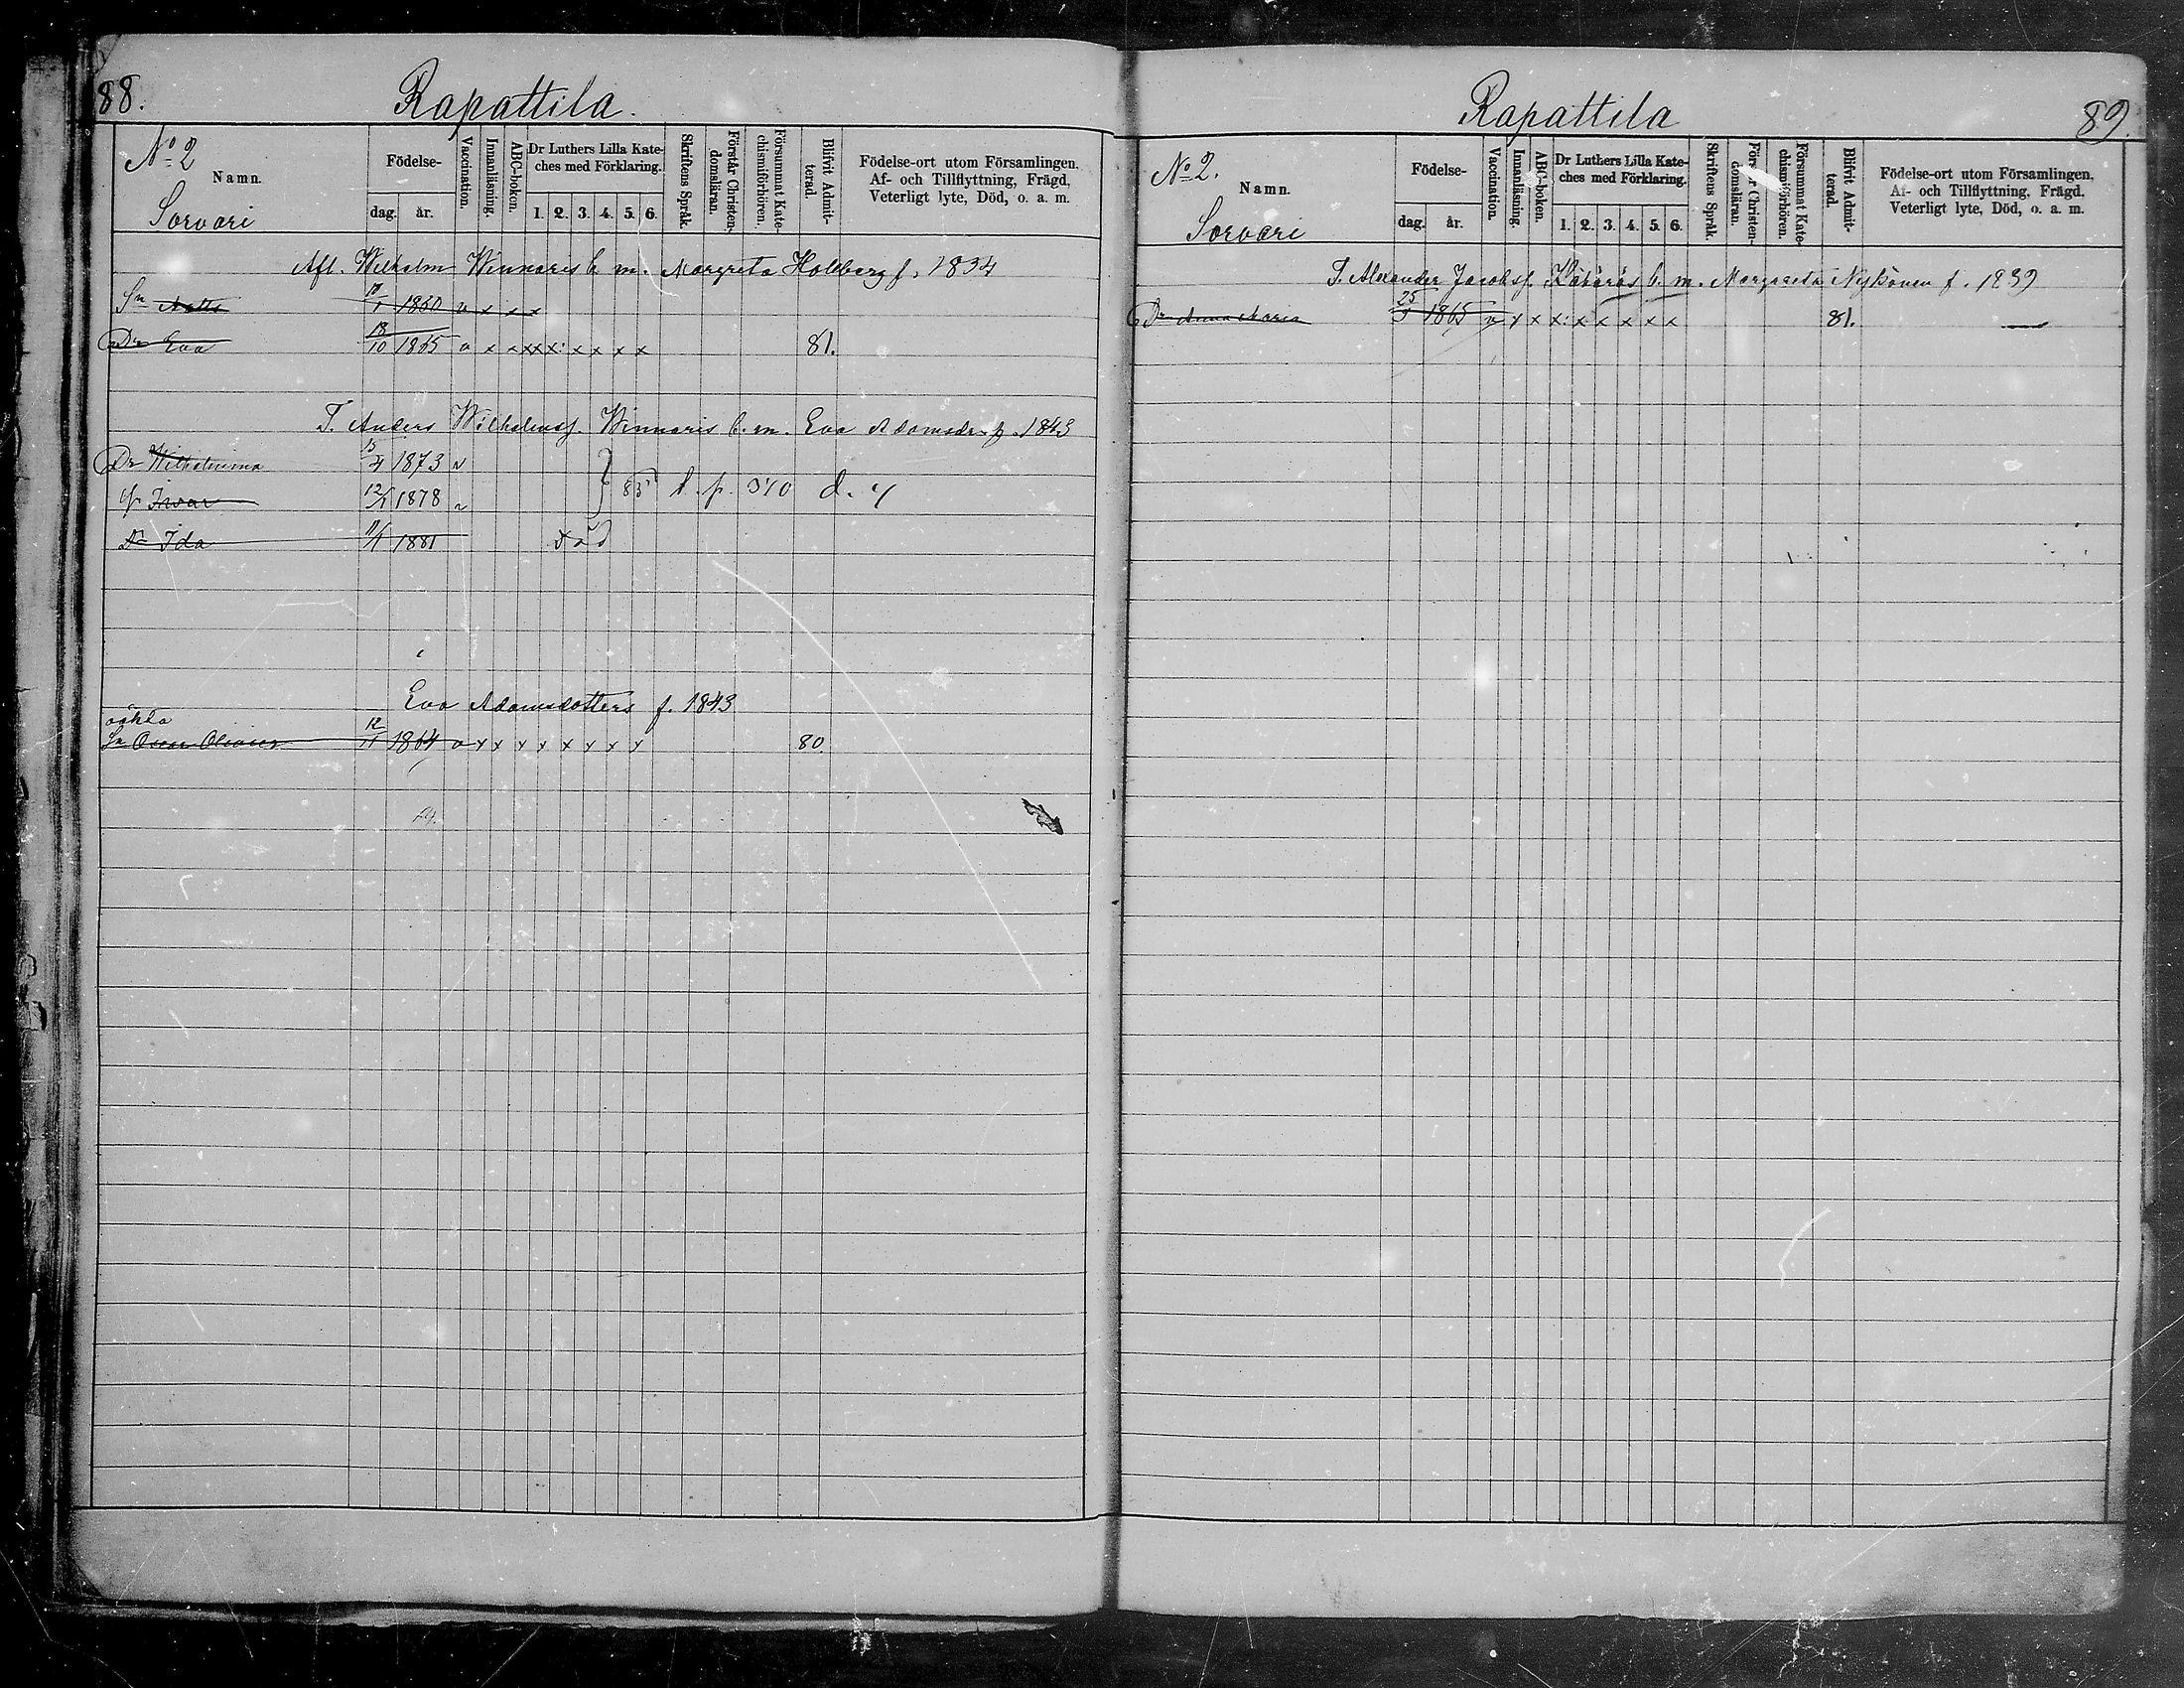 88.
Rapattila.
No 2
Namn.
Sorvari
Födelse-
dag. år.
Vaccination.
Innanläsning.
ABC-boken.
Dr Luthers Lilla Kate-
ches med Förklaring.
1. 2. 3. 4. 5. 6.
Skriftens Språk.
Förstår Christen-
domsläran.
Försummat Kate-
chismiförhören.
Blifvit Admit-
terad.
Födelse-ort utom Församlingen.
Af- och Tillflyttning, Frägd,
Veterligt lyte, Död, o. a. m.
Afl. Wilhelm Winnaris b. m. Margreta Holtberg f. 1834
Sn Matts 1860 v x x x
Dr Eva 18/10 1865 v x x x x x: x x x x 81.
T. Anders Wilhelmsf. Winnaris b. m. Eva Adamsdr f. 1843
Dr Wilhelmina 1873 v
Ivar 1878 v
85 l. p. 370 d. y
Dr Ida 11/1 1881 Död
Eva Adamsdotters f. 1843
oäkta
Sn Oscar 12/11 1864 v x x x x x x x x 80.
Rapattila
89.
No 2.
Namn.
Sorvari
Födelse-
dag. år.
Vaccination.
Innanläsning.
ABC-boken.
Dr Luthers Lilla Kate-
ches med Förklaring.
1. 2. 3. 4. 5. 6.
Skriftens Språk.
Förstår Christen-
domsläran.
Försummat Kate-
chismiförhören.
Blifvit Admit-
terad.
Födelse-ort utom Församlingen,
Af- och Tillflyttning, Frägd,
Veterligt lyte, Död, o. a. m.
T. Alexander Jacobsf. b. m. Margareta Nykänen f. 1839
Dr Anna Maria 25/5 1865 v x x x: x x x x x 81.